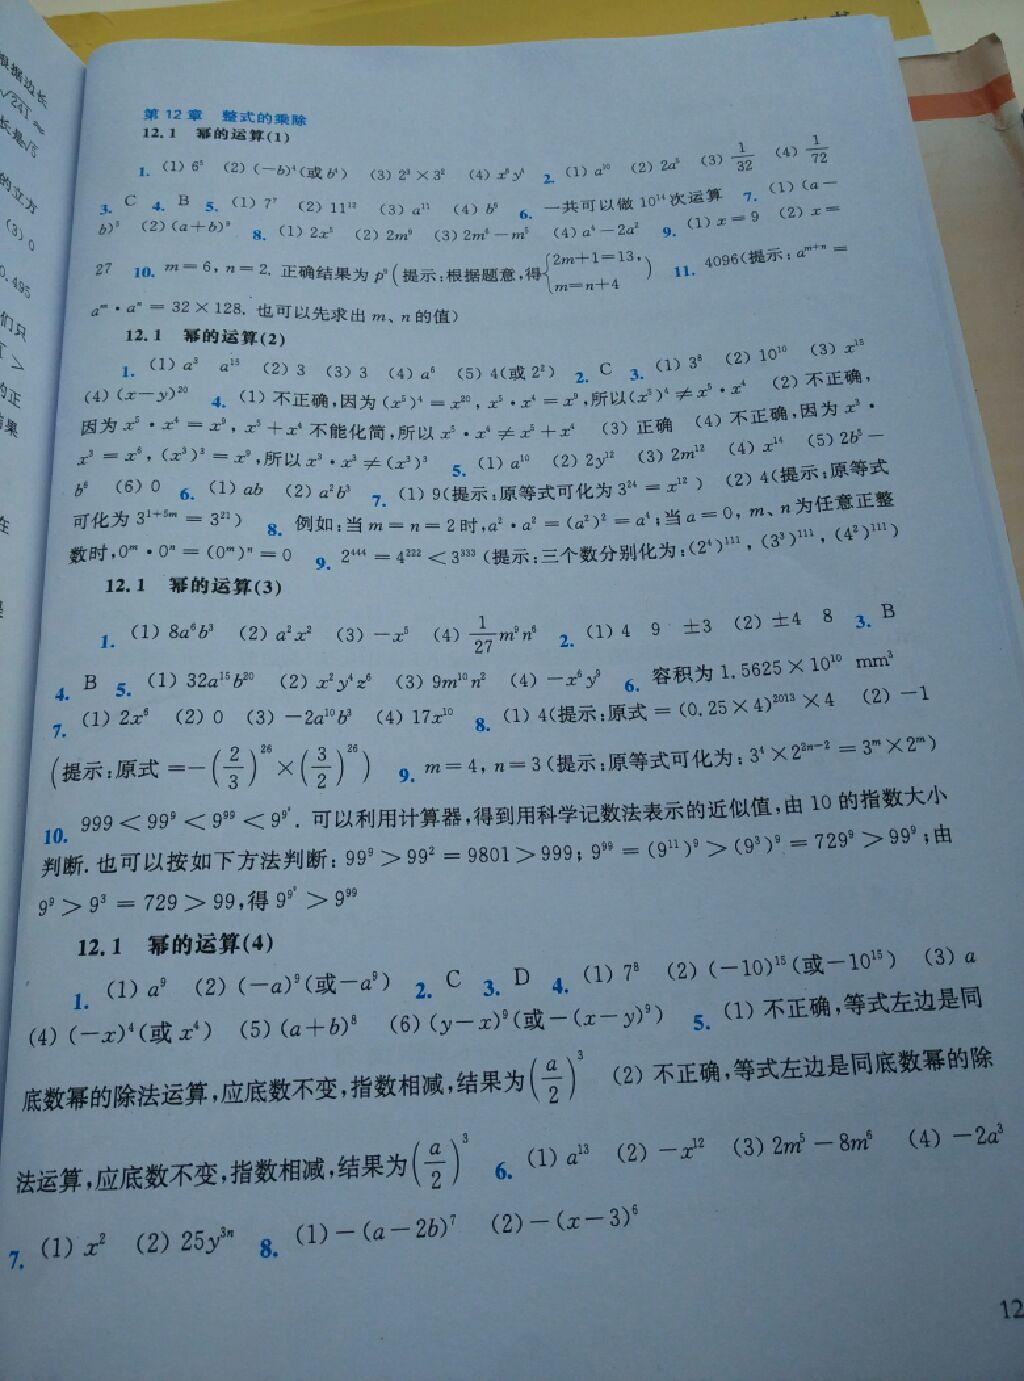 第12章 整式的乘除
12.1 幂的运算(1)
1. (1) 6⁵ (2) (−b)⁴(或b⁴) (3) 2³×3² (4) 2. (1) a¹⁰ (2) 2a⁵ (3) 1/32 (4) 1/72
3. C 4. B 5. (1) 7⁷ (2) 11¹² (3) a¹¹ (4) b⁶ 6. 一共可以做10¹⁴次运算 7. (1) (a−
b)⁵ (2) (a+b)⁹ 8. (1) 2x⁵ (2) 2m⁹ (3) 2m⁴−m⁵ (4) a⁴−2a² 9. (1) x=9 (2) x=
27 10. m=6, n=2, 正确结果为p⁹(提示:根据题意,得{2m+1=13, m=n+4) 11. 4096(提示: aᵐ⁺ⁿ=
aᵐ·aⁿ=32×128. 也可以先求出m、n的值)
12.1 幂的运算(2)
1. (1) a⁸ a¹⁵ (2) 3 (3) 3 (4) a⁶ (5) 4(或2²) 2. C 3. (1) 3⁸ (2) 10¹⁰ (3) x¹⁵
(4) (x−y)²⁰ 4. (1) 不正确,因为(x⁵)⁴=x²⁰, x⁵·x⁴=x⁹,所以(x⁵)⁴≠x⁵·x⁴ (2) 不正确,
因为x⁵·x⁴=x⁹, x⁵+x⁴不能化简,所以x⁵·x⁴≠x⁵+x⁴ (3) 正确 (4) 不正确,因为x³·
x³=x⁶, (x³)³=x⁹,所以x³·x³≠(x³)³ 5. (1) a¹⁰ (2) 2y¹² (3) 2m¹² (4) x¹⁴ (5) 2b⁵−
b⁶ (6) 0 6. (1) ab (2) a²b³ 7. (1) 9(提示:原等式可化为3²⁴=x¹²) (2) 4(提示:原等式
可化为3¹⁺⁵ᵐ=3²¹) 8. 例如:当m=n=2时,a²·a²=(a²)²=a⁴;当a=0, m、n为任意正整
数时,0ᵐ·0ⁿ=(0ᵐ)ⁿ=0 9. 2⁴⁴⁴=4²²²<3³³³(提示:三个数分别化为:(2⁴)¹¹¹, (3³)¹¹¹, (4²)¹¹¹)
12.1 幂的运算(3)
1. (1) 8a⁶b³ (2) a²x² (3) −x⁵ (4) 1/27 m⁹n⁶ 2. (1) 4 9 ±3 (2) ±4 8 3. B
4. B 5. (1) 32a¹⁵b²⁰ (2) x²y⁴z⁶ (3) 9m¹⁰n² (4) −x⁶y⁹ 6. 容积为1.5625×10¹⁰ mm³
7. (1) 2x⁶ (2) 0 (3) −2a¹⁰b³ (4) 17x¹⁰ 8. (1) 4(提示:原式=(0.25×4)²⁰¹³×4 (2) −1
(提示:原式=−(2/3)²⁶×(3/2)²⁶) 9. m=4, n=3(提示:原等式可化为: 3⁴×2²ⁿ⁻²=3ᵐ×2ᵐ)
10. 999<99⁹<9⁹⁹<9^(9⁹). 可以利用计算器,得到用科学记数法表示的近似值,由10的指数大小
判断.也可以按如下方法判断: 99⁹>99²=9801>999; 9⁹⁹=(9¹¹)⁹>(9³)⁹=729⁹>99⁹;由
9⁹>9³=729>99,得9^(9⁹)>9⁹⁹
12.1 幂的运算(4)
1. (1) a⁹ (2) (−a)⁹(或−a⁹) 2. C 3. D 4. (1) 7⁸ (2) (−10)¹⁵(或−10¹⁵) (3) a
(4) (−x)⁴(或x⁴) (5) (a+b)⁸ (6) (y−x)⁹(或−(x−y)⁹) 5. (1) 不正确,等式左边是同
底数幂的除法运算,应底数不变,指数相减,结果为(a/2)³ (2) 不正确,等式左边是同底数幂的除
法运算,应底数不变,指数相减,结果为(a/2)³ 6. (1) a¹³ (2) −x¹² (3) 2m⁵−8m⁶ (4) −2a³
7. (1) x² (2) 25y³ⁿ 8. (1) −(a−2b)⁷ (2) −(x−3)⁶
12